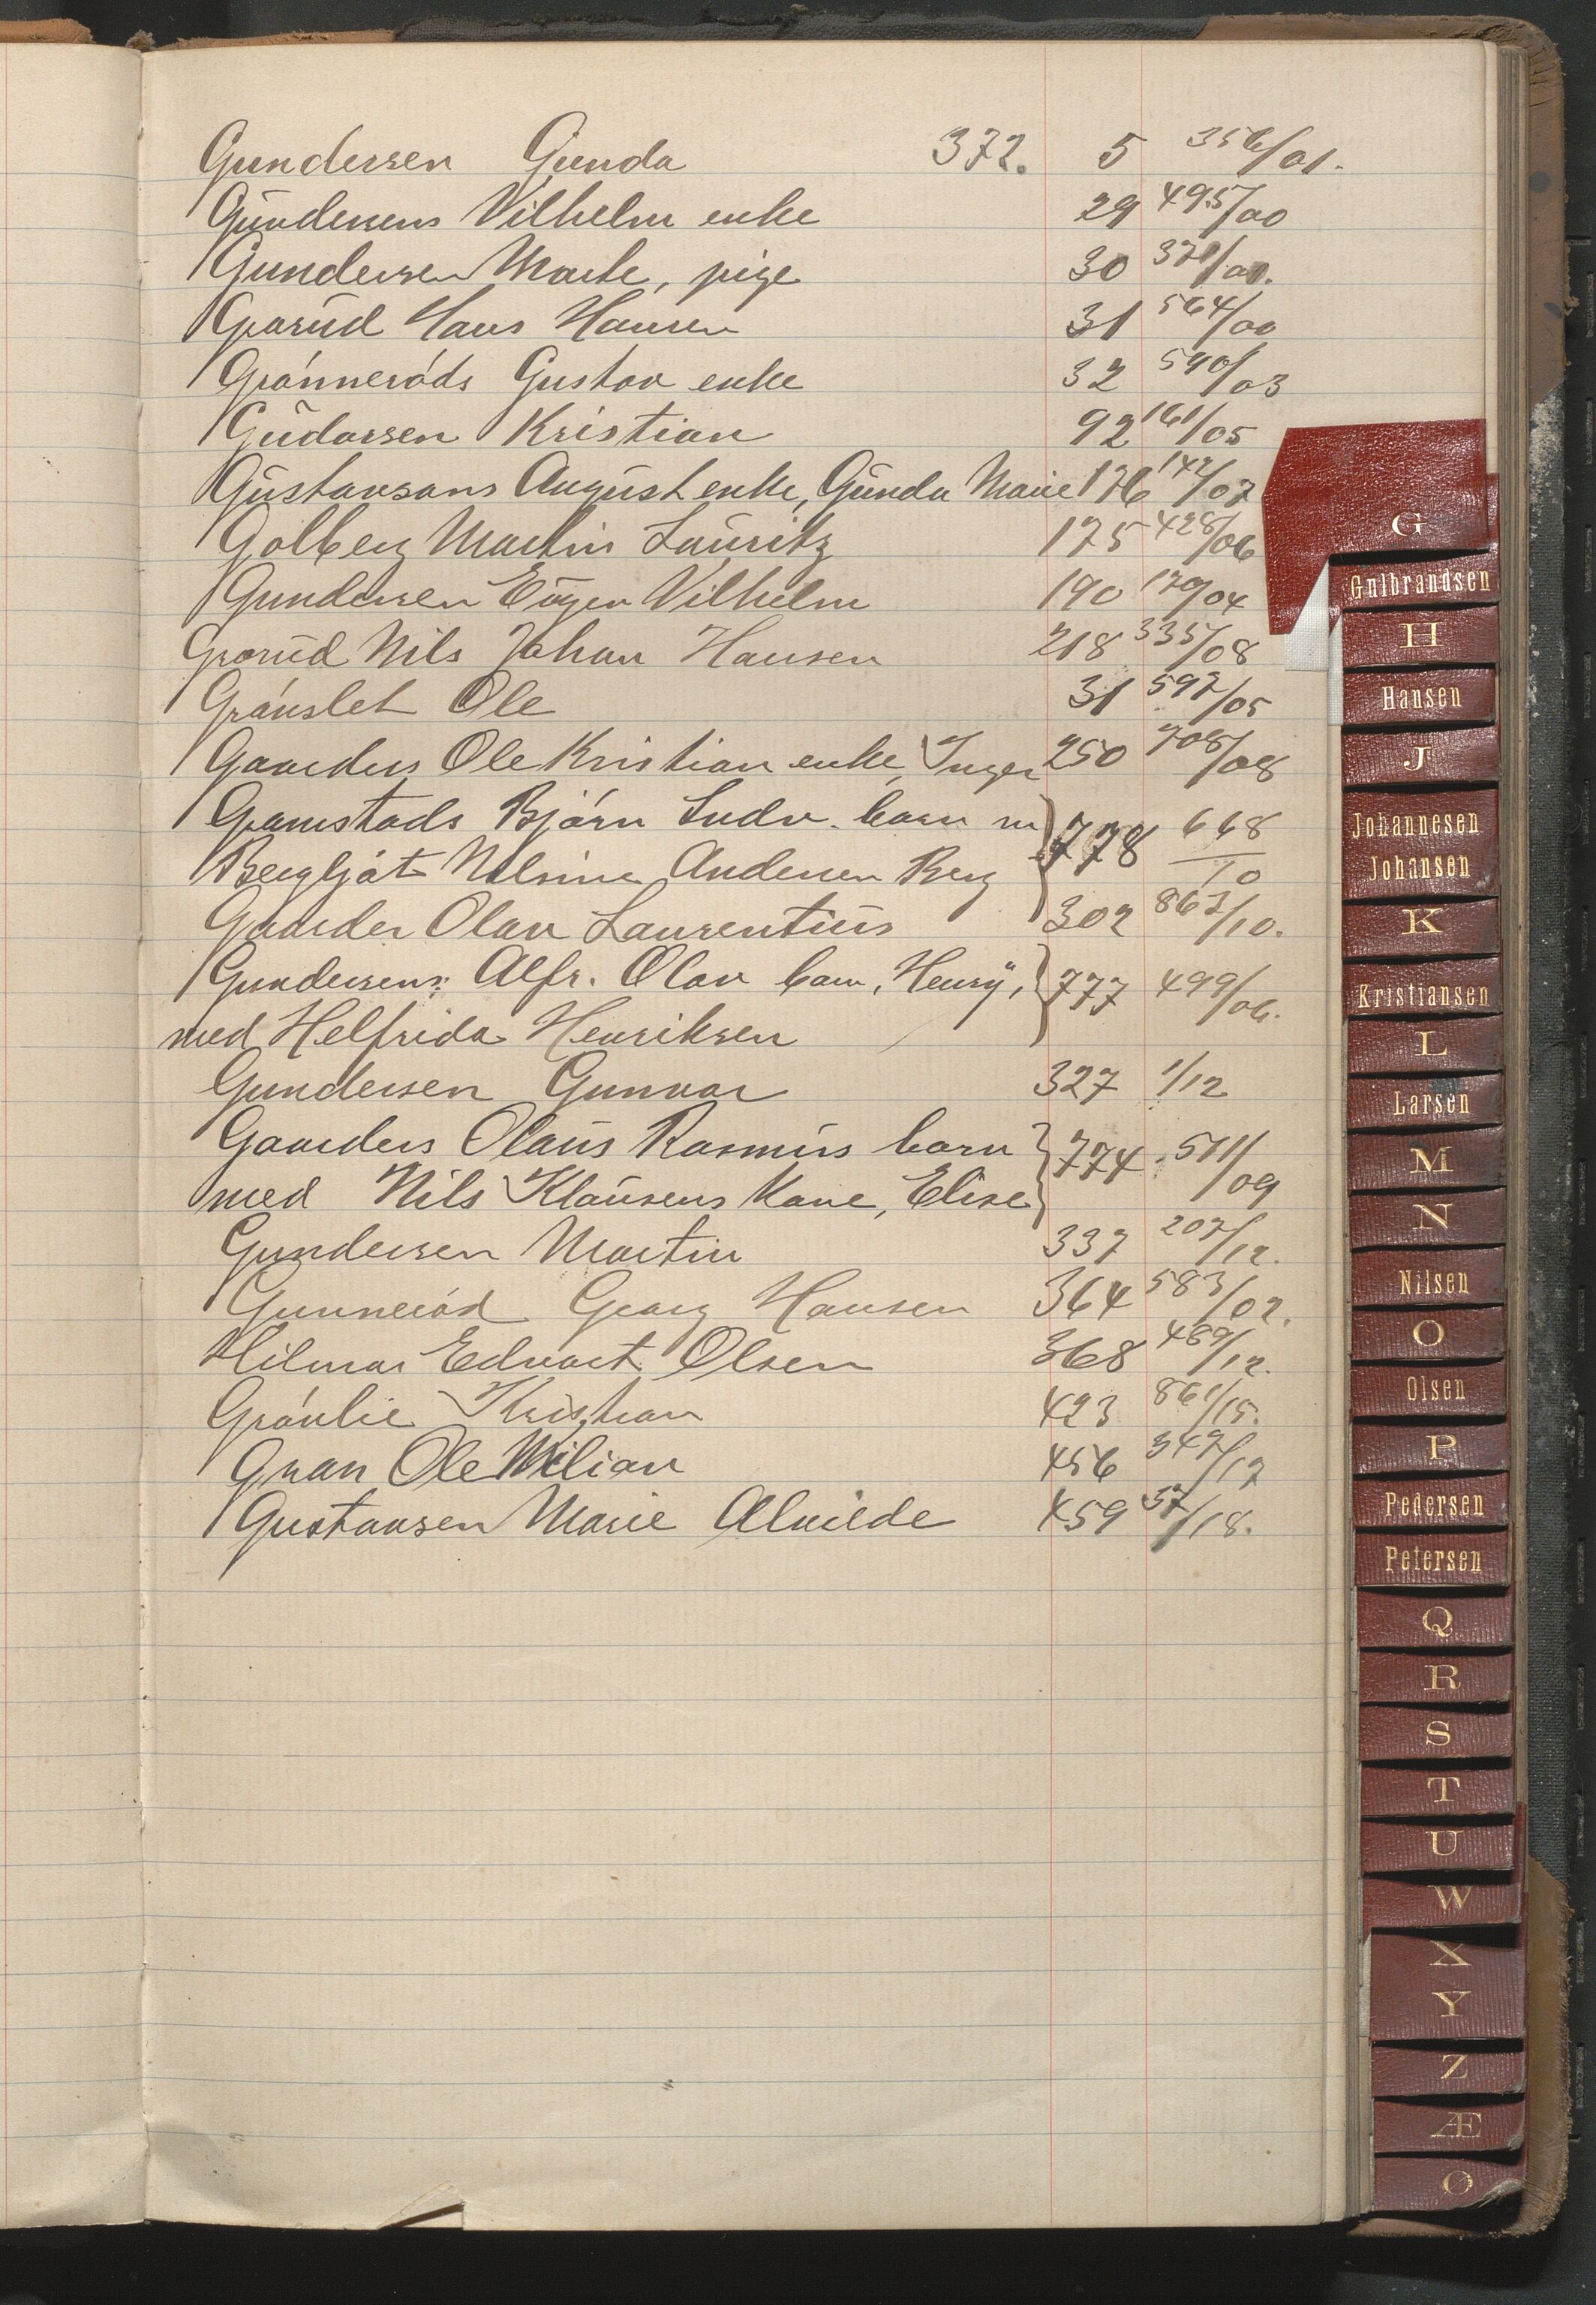 Gundersen Gunda 372. 5 356/01.
Gundersens Vilhelm enke 29 495/00
Gundersen Marte, pige 30 370/00.
Grorud Hans Hansen 31 564/00
Grønnerøds Gustav enke 32 590/03
Gudarsen Kristian 92 161/05
Gustavsens August enke, Gunda Marie 176 142/07
Golberg Martin Lauritz 175 428/06
Gundersen Eugen Vilhelm 190 179/04
Grorud Nils Johan Hansen 218 335/08
Grønslet Ole 31 597/05
Gaarders Ole Kristian enke, Inger 250 708/08
Gamstads Bjørn Ludv. barn m
Bergljøt Nilsine Andersen Berg } 778 668/10
Gaarder Olav Laurentius 302 863/10.
Gundersens Alfr. Olav barn, Henry,
med Helfrida Henriksen } 777 499/06.
Gundersen Gunvor 327 1/12
Gaarders Olaus Rasmus barn
med Nils Klausens kone, Elise } 774 511/09
Gundersen Martin 337 207/12.
Gunnerød Georg Hansen 364 583/02.
Hilmar Edvart Olsen 368 489/12.
Grønlie Kristian 423 861/15.
Gran Ole Milian 456 347/17
Gustavsen Marie Alvilde 459 57/18.
G
Gulbrandsen
H
Hansen
J
Johannesen
Johansen
K
Kristiansen
L
Larsen
M
N
Nilsen
O
Olsen
P
Pedersen
Petersen
Q
R
S
T
U
W
X
Y
Z
Æ
Ø